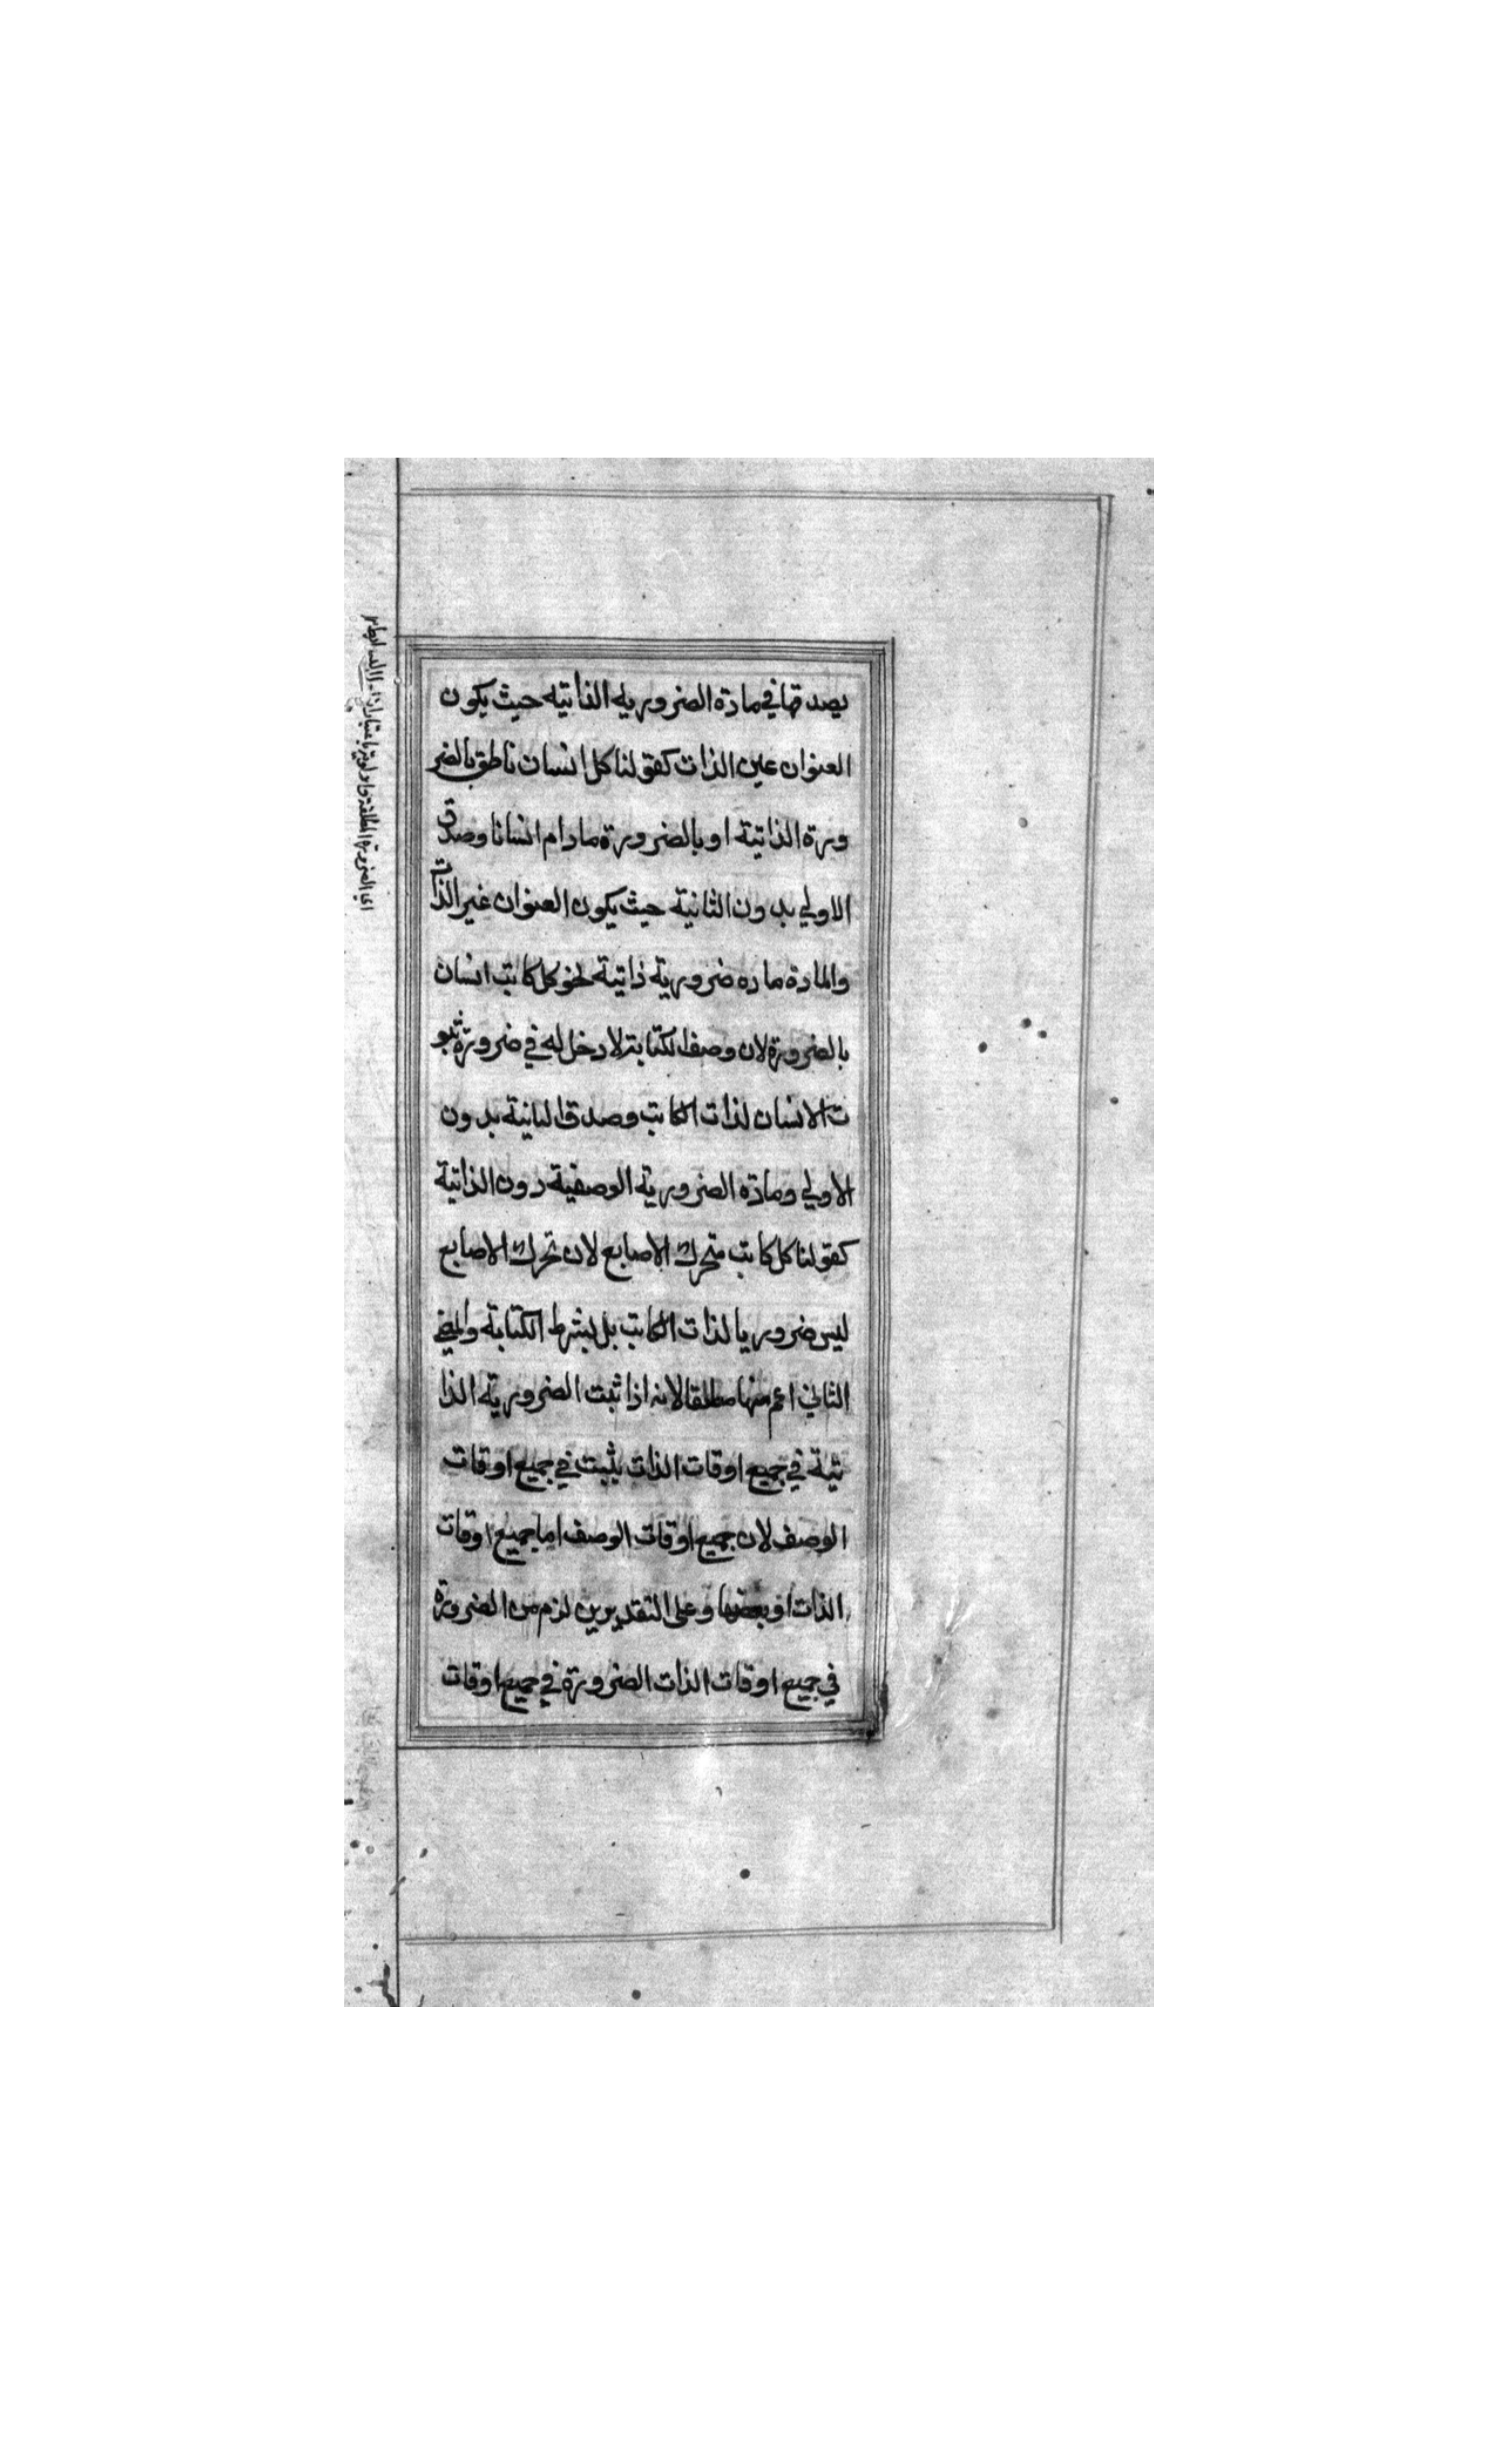 يصدقها في مادة الضروريه الذاتيه حيث يكون
العنوان عين الذات كقولنا كل انسان ناطق بالضر
ورة الذاتية او بالضرورة مادام انسانا وصدق
الاولي بدون الثانية حيث يكون العنوان غير الذات
والمادة ماده ضرورية ذاتية نحو كل كاتب انسان
بالضرورة لان وصف الكتابة لا دخل له في ضرورة ثبو
ت الانسان لذات الكاتب وصدق الثانية بدون
الاولي ومادة الضرورية الوصفية دون الذاتية
كقولنا كل كاتب متحرك الاصابع لان تحرك الاصابع
ليس ضروريا لذات الكاتب بل بشرط الكتابة
الثاني اعم منها مطلقا لانه اذا ثبت الضرورية الذا
تية في جميع اوقات الذات يثبت في جميع اوقات
الوصف لان جميع اوقات الوصف اما جميع اوقات
الذات او بعضها وعلى التقديرين لزم من الضرورة
في جميع اوقات الذات الضرورة في جميع اوقات